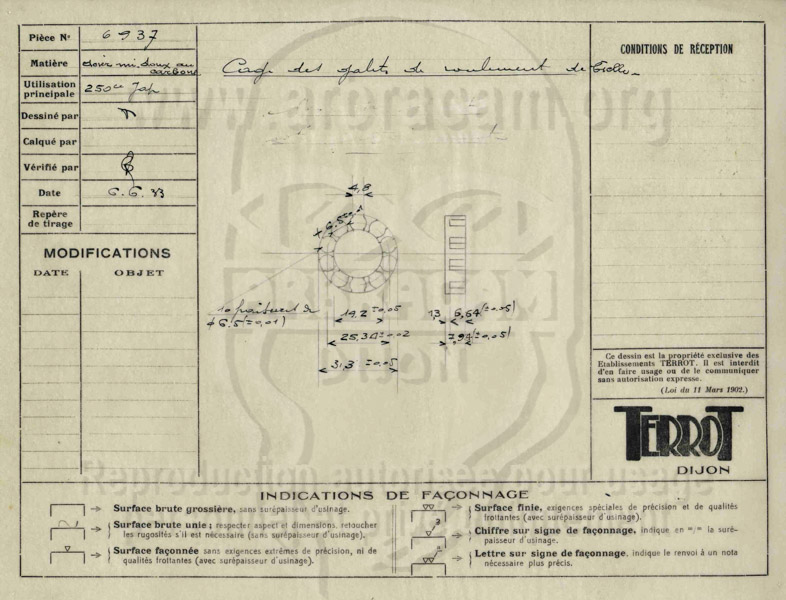 Pièce Nº 6937
Matière acier mi-doux au carbone
Utilisation principale 250cc Jap
Dessiné par
Calqué par
Vérifié par
Date 6.6.33
Repère de tirage
MODIFICATIONS
DATE OBJET
Cage des galets de roulement de
CONDITIONS DE RÉCEPTION
www.araracam.org
4,8
6.5
φ 6.5 (=0,01)
19,2 =0,05
25,34 =0,02
31,3 =0,05
1,3 6,64 (=0,05)
7,94 (=0,05)
Ce dessin est la propriété exclusive des
Etablissements TERROT. Il est interdit
d'en faire usage ou de le communiquer
sans autorisation expresse.
(Loi du 11 Mars 1902.)
TERROT
DIJON
Reproduction autorisée pour usage
INDICATIONS DE FAÇONNAGE
Surface brute grossière, sans surépaisseur d'usinage.
Surface brute unie ; respecter aspect et dimensions, retoucher
les rugosités s'il est nécessaire (sans surépaisseur d'usinage).
Surface façonnée sans exigences extrêmes de précision, ni de
qualités frottantes (avec surépaisseur d'usinage).
Surface finie, exigences spéciales de précision et de qualités
frottantes (avec surépaisseur d'usinage).
3
Chiffre sur signe de façonnage, indique en m/m la suré-
paisseur d'usinage.
a
Lettre sur signe de façonnage, indique le renvoi à un nota
nécessaire plus précis.